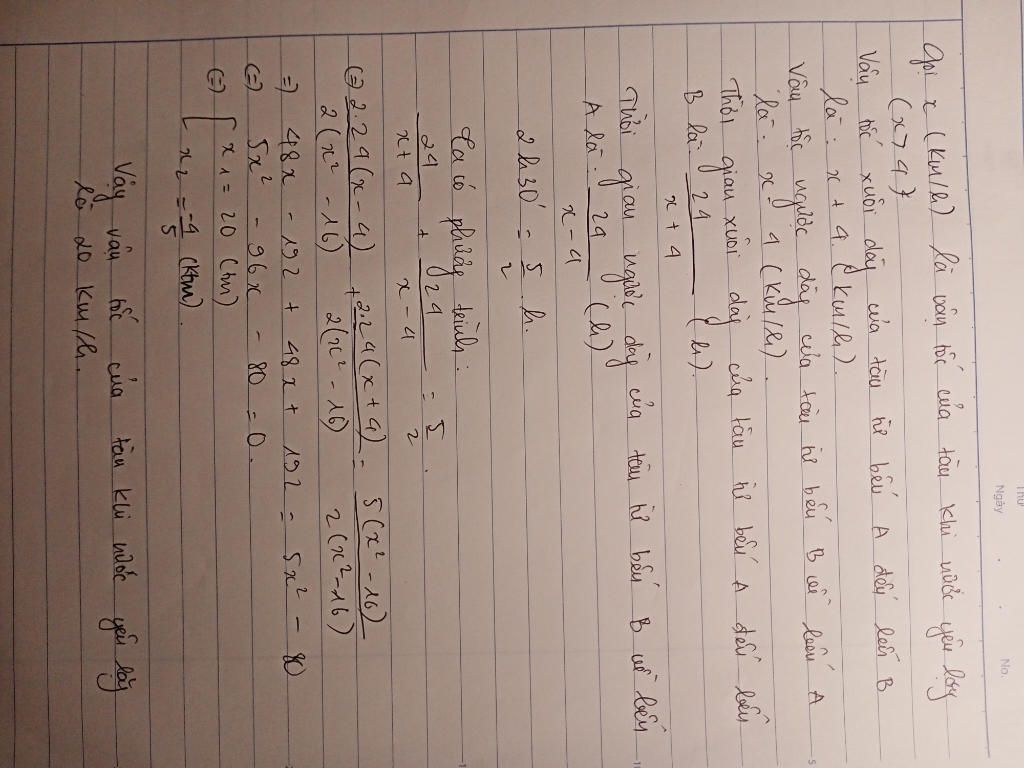 THỨ
Ngày . . No.
Gọi x (km/h) là vận tốc của tàu khi nước yên lặng
(x > 4)
Vận tốc xuôi dòng của tàu từ bến A đến bến B
là: x + 4 (km/h).
Vận tốc ngược dòng của tàu từ bến B về bến A
là: x - 4 (km/h).
Thời gian xuôi dòng của tàu từ bến A đến bến
B là: 24/(x + 4) (h).
Thời gian ngược dòng của tàu từ bến B về bến
A là: 24/(x - 4) (h)
2h30' = 5/2 h.
Ta có phương trình:
24/(x+4) + 24/(x-4) = 5/2.
(=) 2.24(x-4)/2(x² - 16) + 2.24(x+4)/2(x² - 16) = 5(x² - 16)/2(x² - 16)
=) 48x - 192 + 48x + 192 = 5x² - 80
(=) 5x² - 96x - 80 = 0.
(=) [ x₁ = 20 (hn)
x₂ = -4/5 (Khn).
Vậy vận tốc của tàu khi nước yên lặng
là 20 km/h.